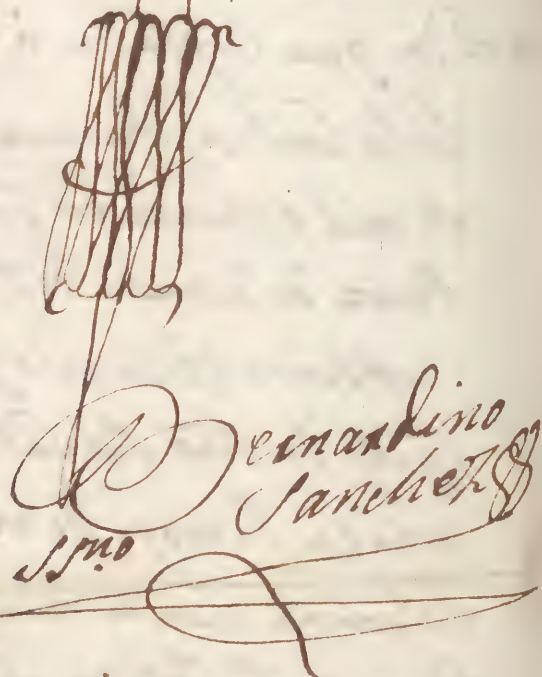 Bernardino
Sanchez
ssno